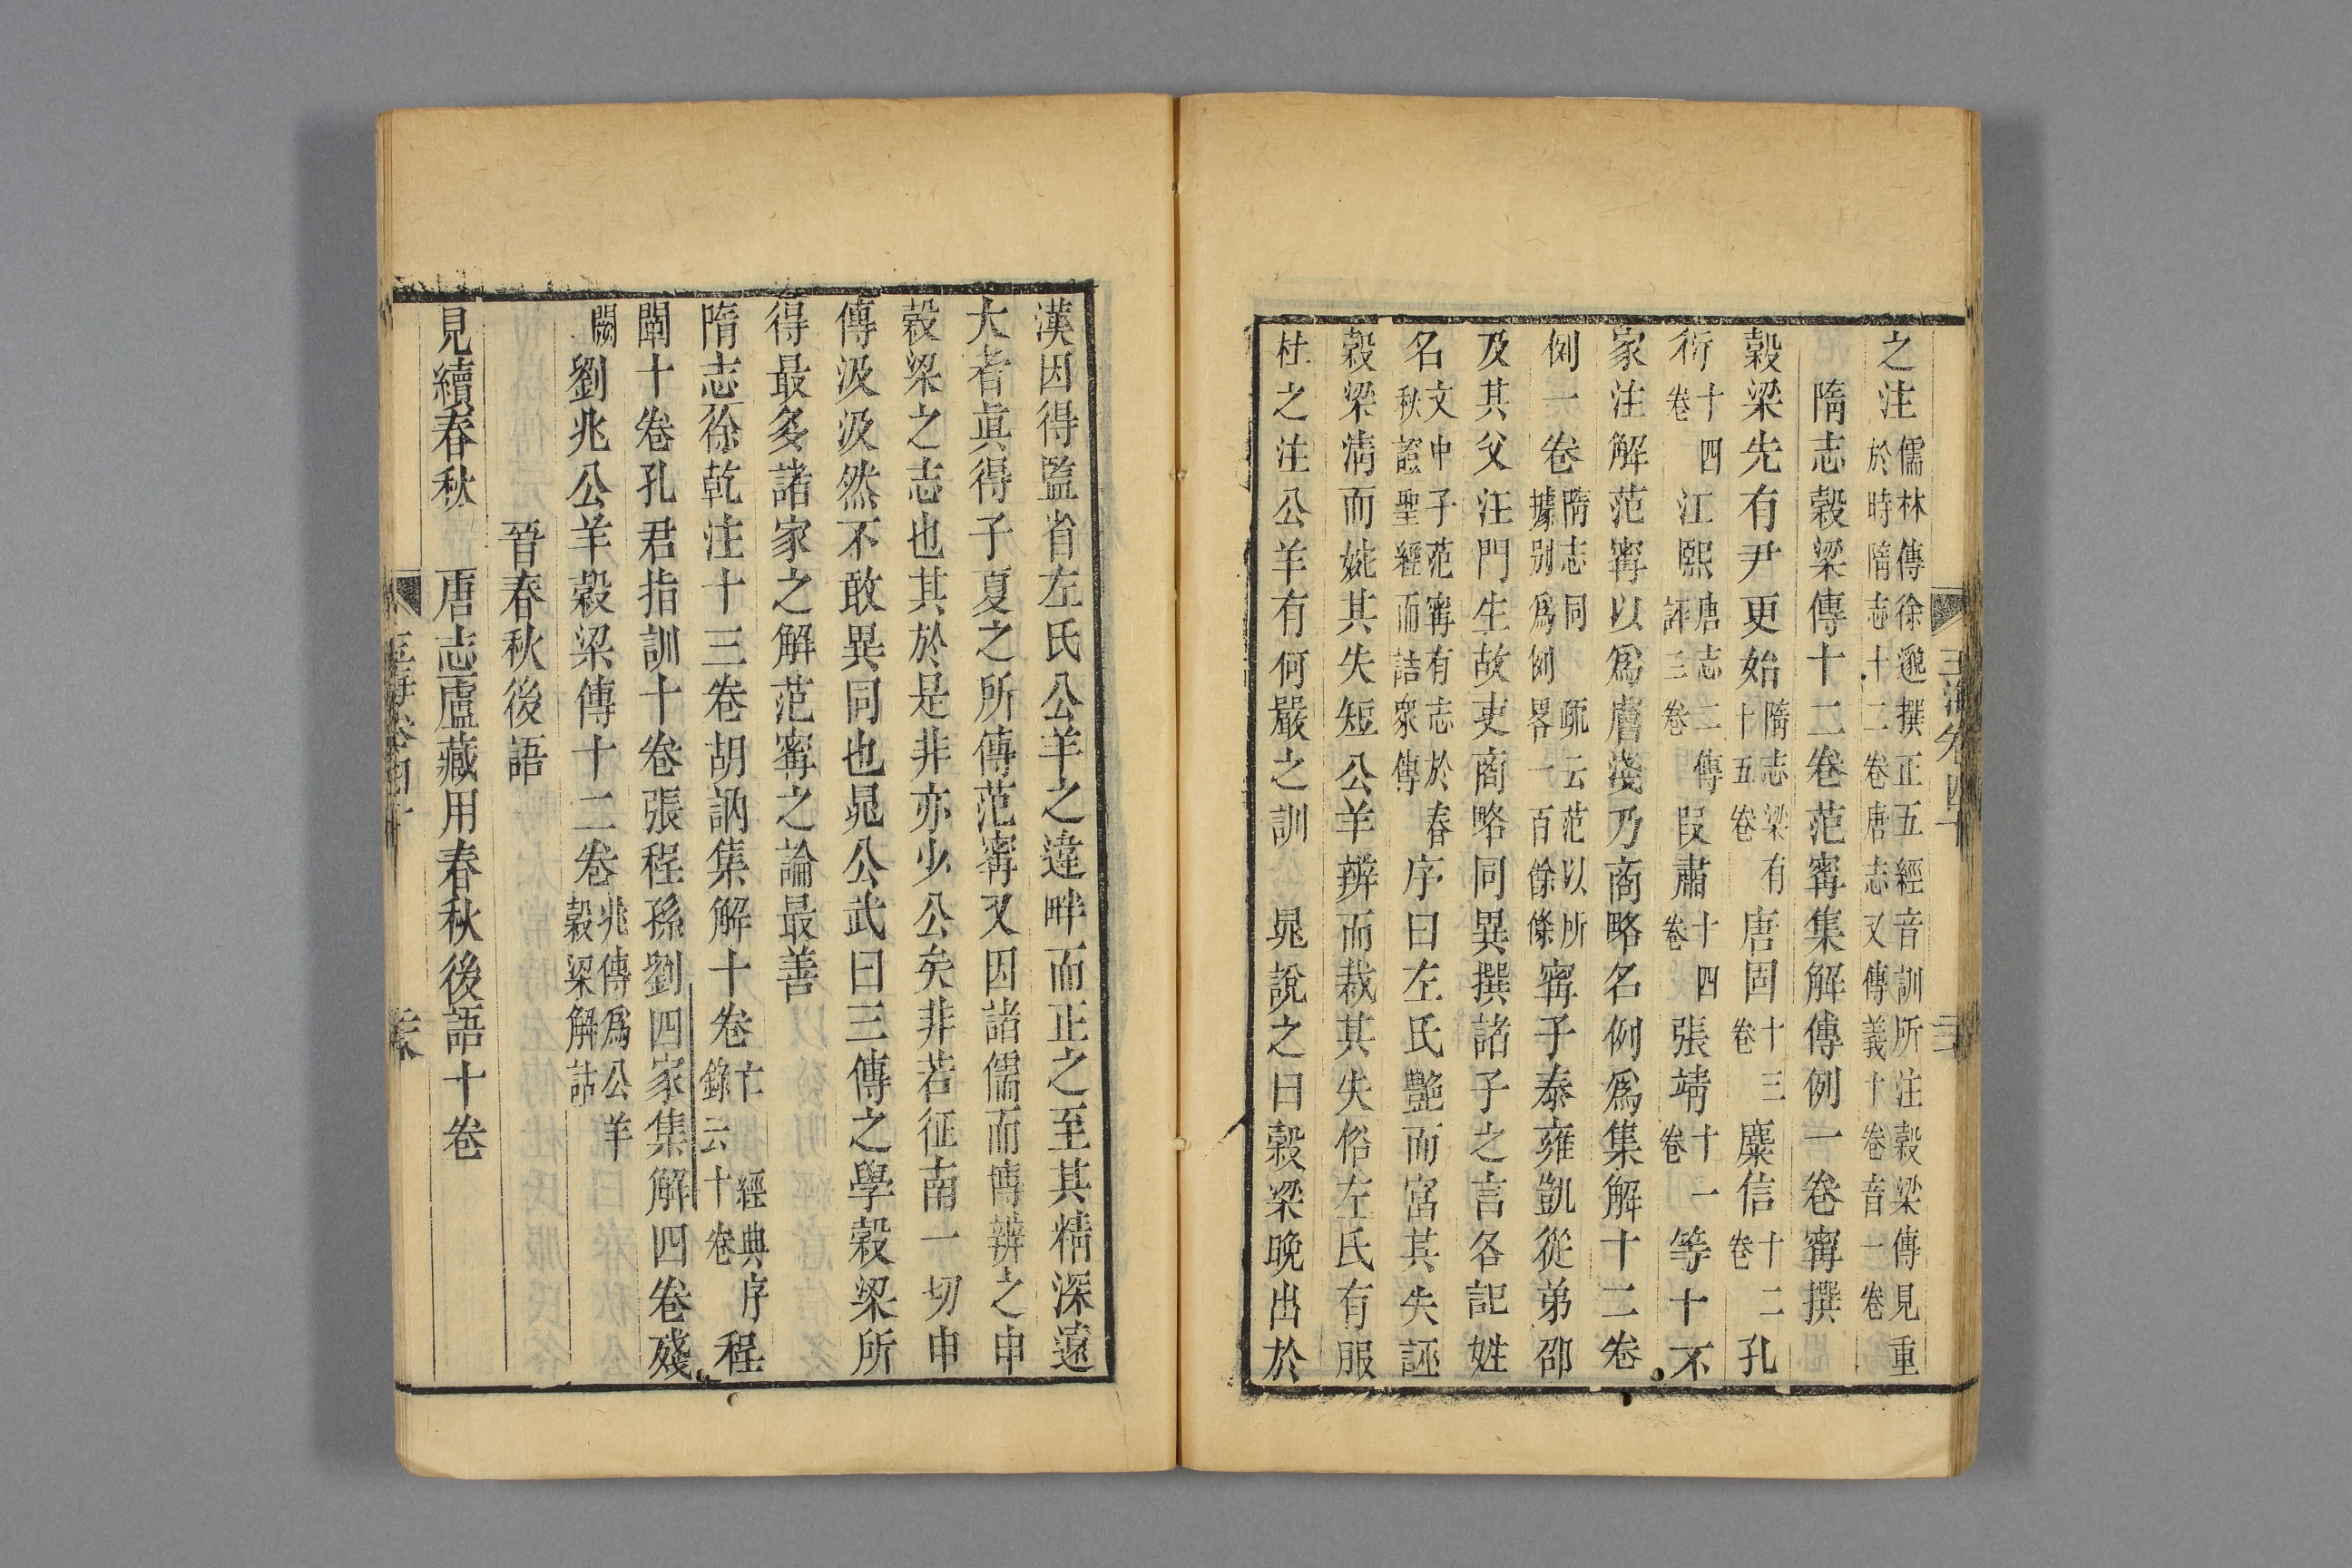 之注儒林傳徐邈撰正五經音訓所注穀梁傳見重於時隋志十二卷唐志又傳義十卷音一卷
隋志穀梁傳十二卷范甯集解傳例一卷甯撰
穀梁先有尹更始隋志梁有十五卷唐固十三卷麋信十二卷孔
衍十四卷江熙唐志二傳評三卷段肅十四卷張靖十一卷等十不
家注解范甯以為膚淺乃商略名例為集解十二卷
例一卷隋志同 疏云范以所據別為例畧一百餘條甯子泰雍凱從弟邵
及其父汪門生故吏商略同異撰諸子之言各記姓
名文中子范甯有志於春秋證聖經而詰眾傳序曰左氏艶而富其失誣
穀梁清而婉其失短公羊辨而裁其失俗左氏有服
杜之注公羊有何嚴之訓 晁說之曰穀梁晚出於
玉海卷四十
漢因得監省左氏公羊之違畔而正之至其精深遠
大者真得子夏之所傳范甯又因諸儒而博辨之申
穀梁之志也其於是非亦少公矣非若征南一切申
傳汲汲然不敢異同也晁公武曰三傳之學穀梁所
得最多諸家之解范甯之論最善
隋志徐乾注十三卷胡訥集解十卷亡 經典序錄云十卷程
闡十卷孔君指訓十卷張程孫劉四家集解四卷殘
闕劉兆公羊穀梁傳十二卷兆傳為公羊穀梁解詁
晉春秋後語
見續春秋 唐志盧藏用春秋後語十卷